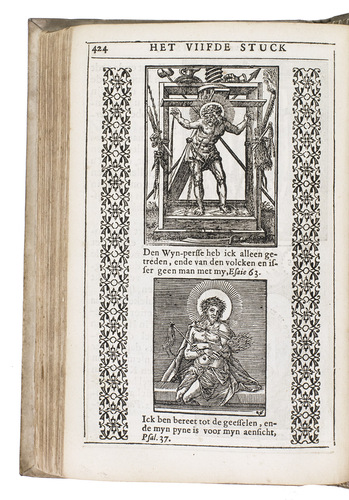 424 HET VIIFDE STUCK
Den Wyn-persse heb ick alleen ge-
treden, ende van den volcken en is-
ser geen man met my, Esaie 63.
Ick ben bereet tot de geesselen, en-
de myn pyne is voor myn aensicht,
Psal. 37.